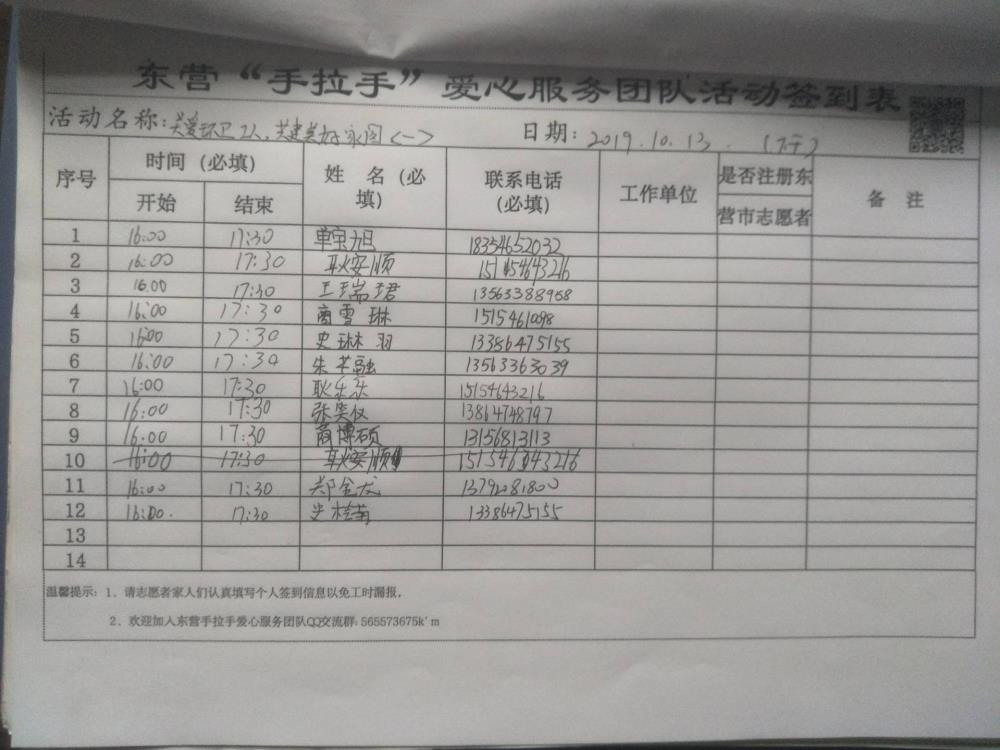 东营“手拉手”爱心服务团队活动签到表
活动名称:关爱环卫工人,共建美好家园<一> 日期: 2019.10.13. (下午)
序号 时间 (必填) 姓 名 (必填) 联系电话 (必填) 工作单位 是否注册东营市志愿者 备 注
开始 结束
1 16:00 17:30 单宗旭 18354652032
2 16:00 17:30 耿安顺 15154643216
3 16:00 17:30 王瑞珺 13563388958
4 16:00 17:30 商雪琳 15154610098
5 16:00 17:30 史琳羽 13386475155
6 16:00 17:30 朱芊融 13563363039
7 16:00 17:30 耿乐乐 15154643216
8 16:00 17:30 张奕仪 13864748797
9 16:00 17:30 商博硕 13156813113
10 16:00 17:30 耿安顺 15154643216
11 16:00 17:30 郑金龙 13792081800
12 16:00. 17:30 史桂菊 13386475155
13
14
温馨提示: 1、请志愿者家人们认真填写个人签到信息以免工时漏报,
2、欢迎加入东营手拉手爱心服务团队QQ交流群: 565573675k'm